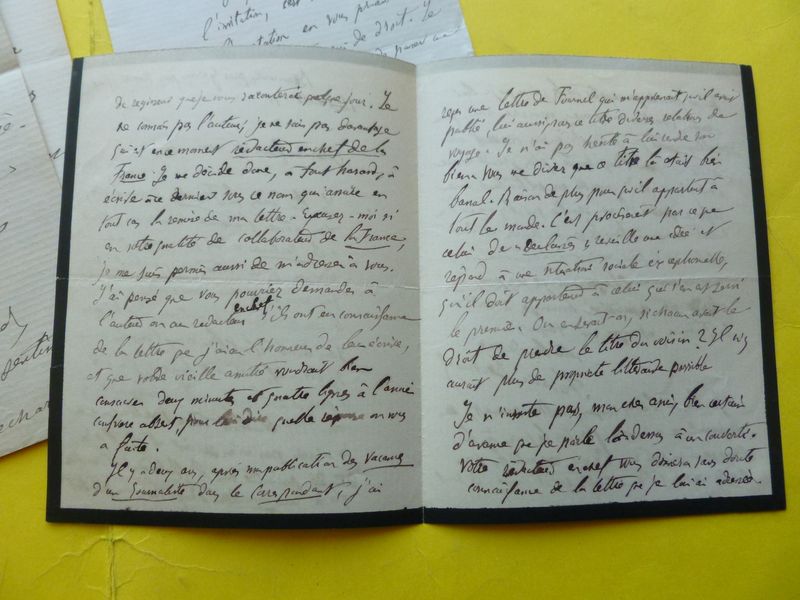 l'invitation, c'est
en vous priant
de droit. Le
de regiment que je vous raconterai quelque jour. Je
ne connais pas l'auteur, je ne sais pas davantage
qui est en ce moment rédacteur en chef de la
France. Je me décide donc, à tout hasard, à
écrire à ce dernier sous ce nom qui assure en
tout cas la remise de ma lettre. Excusez-moi si
en votre qualité de collaborateur de la France,
je me suis permis aussi de m'adresser à vous.
J'ai pensé que vous pourriez demander à
l'auteur ou au rédacteur en chef s'ils ont eu connaissance
de la lettre que j'ai eu l'honneur de leur écrire,
et que votre vieille amitié voudrait bien
consacrer deux minutes et quatre lignes à l'ami
Cupone absent, pour lui dire quelle réponse on vous
a faite.
Il y a deux ans, après ma publication des Vacances
d'un Journaliste dans le Correspondant, j'ai
reçu une lettre de Fournel qui m'apprenait qu'il avait
publié, lui aussi, sous ce titre diverses relations de
voyage. Je n'ai pas hésité à lui rendre son
bien sous me dire que ce titre là était bien
banal. Raison de plus pour qu'il appartînt à
tout le monde. C'est précisément parce que
celui de « Declassés » réveille une idée et
répond à une situation sociale exceptionnelle,
qu'il doit appartenir à celui qui s'en est servi
le premier. Où en serait-on, si chacun avait le
droit de prendre le titre du voisin ? Il n'y
aurait plus de propriété littéraire possible
Je n'insiste pas, mon cher ami, bien certain
d'avance que je parle là-dessus à un converti.
Votre rédacteur en chef vous donnera sans doute
connaissance de la lettre que je lui ai adressée.